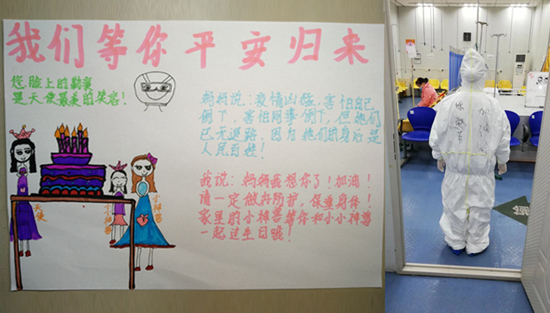 我们等你平安归来
您脸上的勒痕
是天使最美的妆容!
妈妈说:疫情凶猛,害怕自己
倒下,害怕同事倒下,但她们
已无退路,因为她们的身后是
人民百姓!
我说:妈妈我想你了!加油!
请一定做好防护,保重身体!
家里的小神兽等你和小小神兽
一起过生日哦!